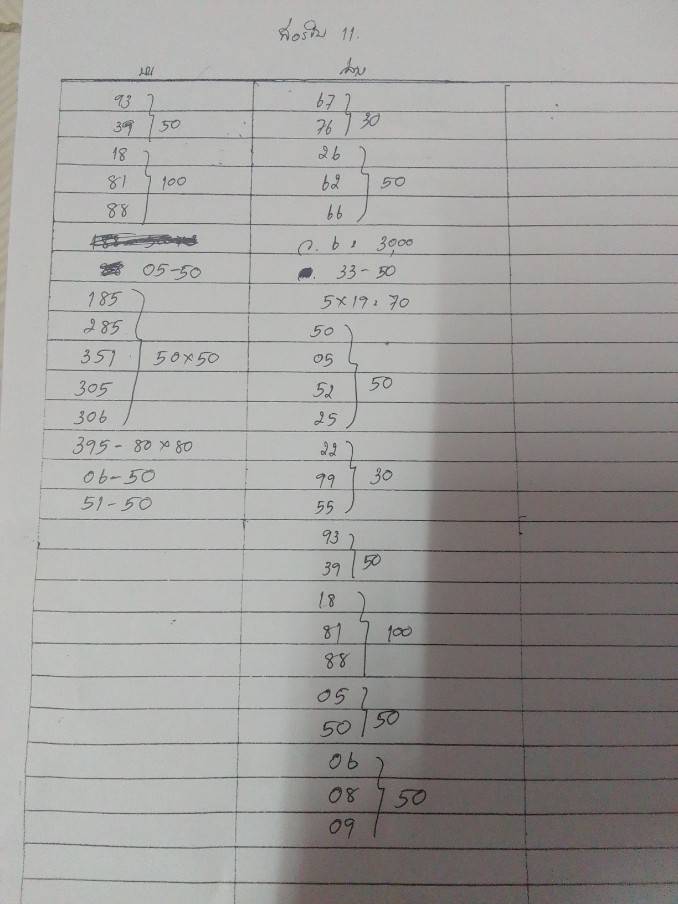 11.
บน
ล่าง
93
39
50
18
81
88
100
05-50
185
285
351
305
306
50×50
395-80×80
06-50
51-50
67
76
30
26
62
66
50
ว. 6 = 3,000
33-50
5×19=70
50
05
52
25
50
22
99
55
30
93
39
50
18
81
88
100
05
50
50
06
08
09
50